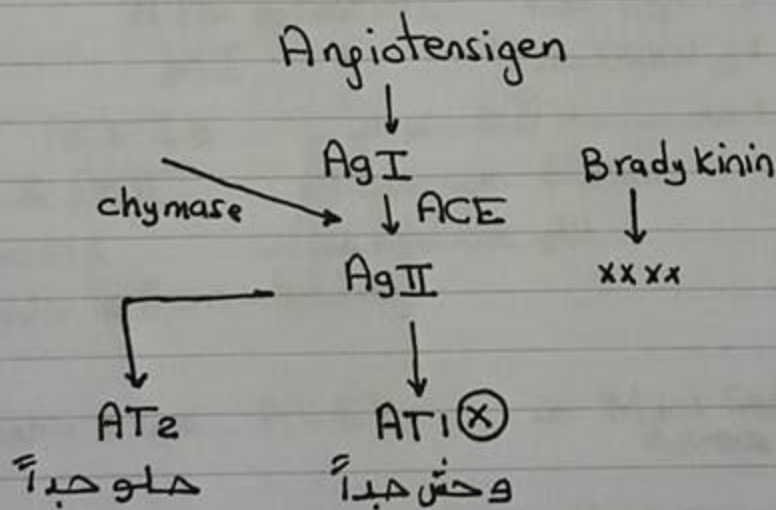 Angiotensigen
AgI
Bradykinin
chymase
ACE
AgII
xxxx
AT2
AT1 ⓧ
حلو جداً
وحش جداً